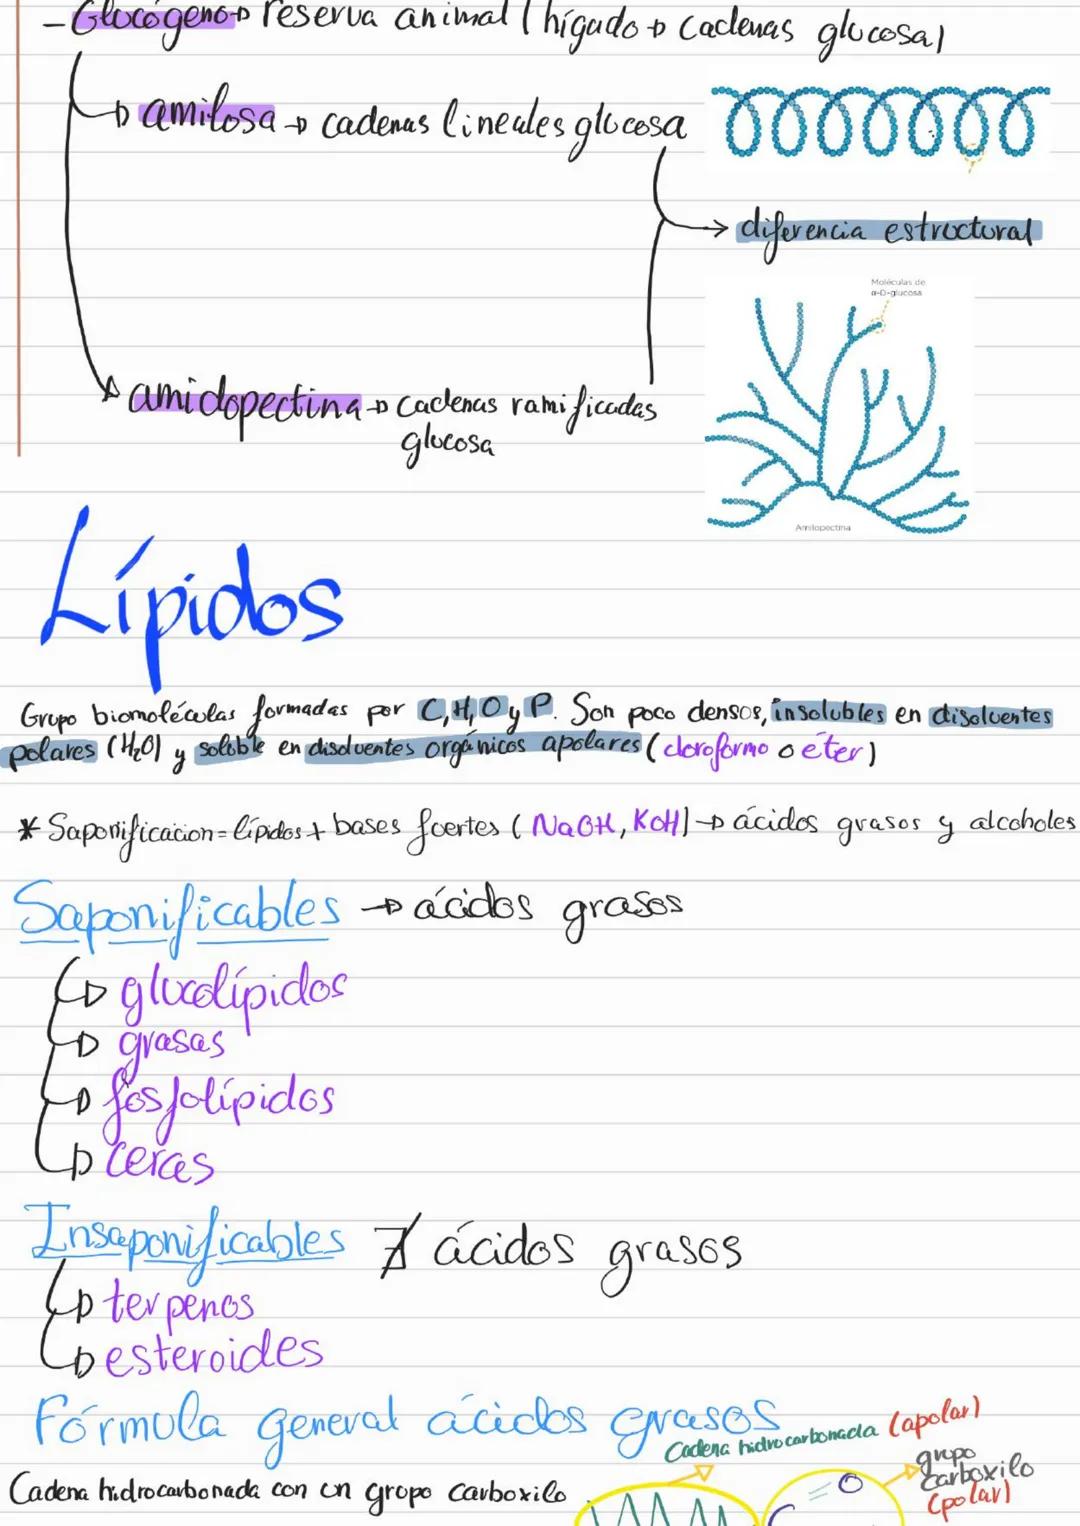 - Glucógeno → reserva animal (hígado → cadenas glucosa)
→ amilosa → cadenas lineales glucosa
→ diferencia estructural
Moléculas de
α-D-glucosa
→ amidopectina → cadenas ramificadas
glucosa
Amilopectina
Lípidos
Grupo biomoléculas formadas por C, H, O y P. Son poco densos, insolubles en disolventes
polares (H₂O) y soluble en disolventes orgánicos apolares (cloroformo o éter)
* Saponificación = lípidos + bases fuertes (NaOH, KOH) → ácidos grasos y alcoholes
Saponificables → ácidos grasos
→ glucolípidos
→ grasas
→ fosfolípidos
→ ceras
Insaponificables ∄ ácidos grasos
→ terpenos
→ esteroides
Fórmula general ácidos grasos
Cadena hidrocarbonada (apolar)
grupo
carboxilo
(polar)
Cadena hidrocarbonada con un grupo carboxilo
O